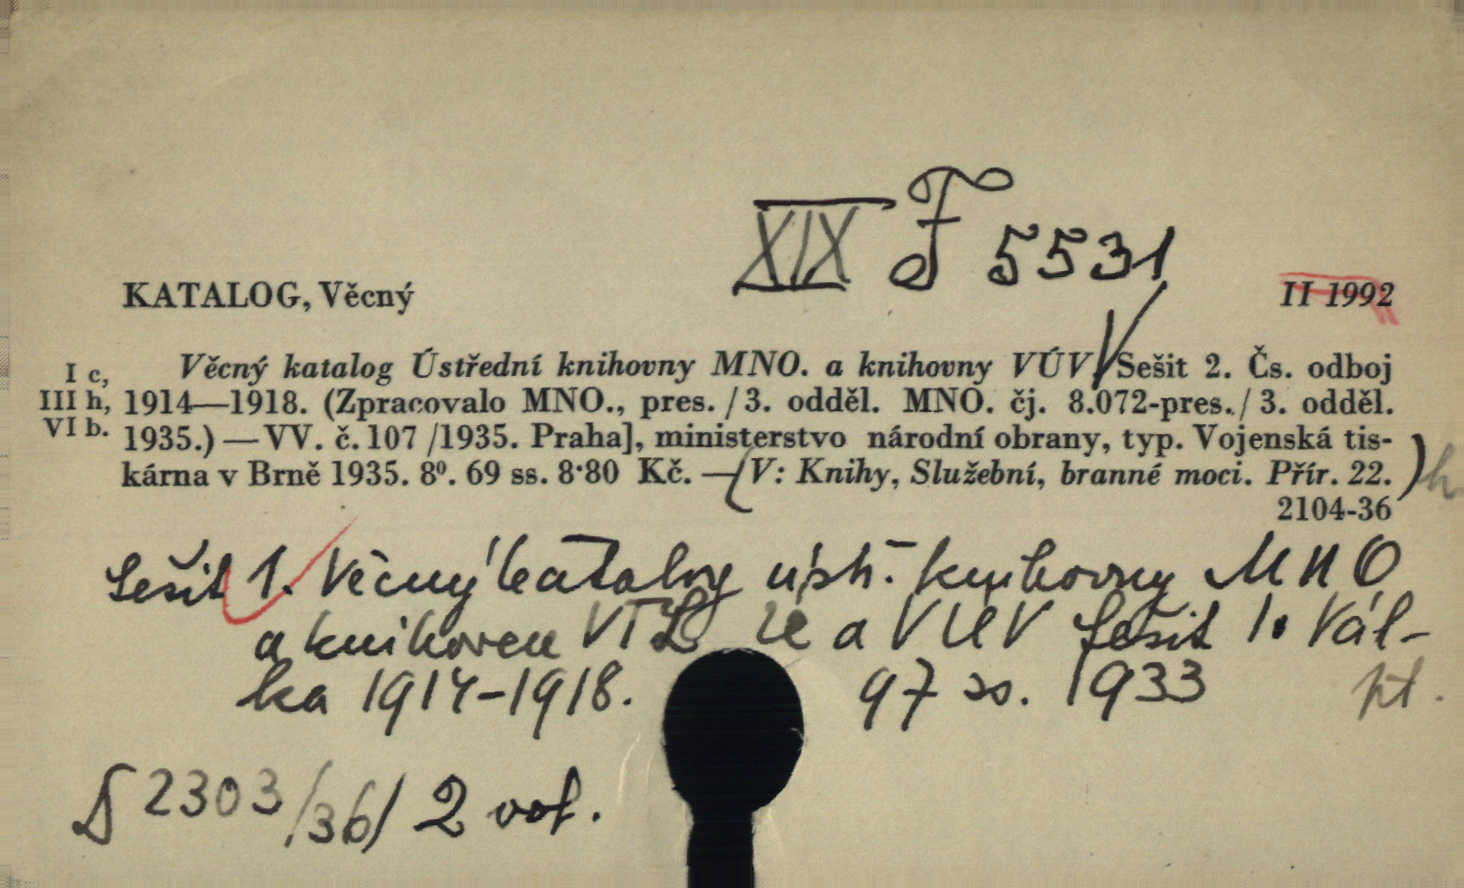 XIX F 5531
KATALOG, Věcný
II 1992
I c,
III h,
VI b.
Věcný katalog Ústřední knihovny MNO. a knihovny VÚV Sešit 2. Čs. odboj
1914—1918. (Zpracovalo MNO., pres. / 3. odděl. MNO. čj. 8.072-pres. / 3. odděl.
1935.) — VV. č. 107 /1935. Praha], ministerstvo národní obrany, typ. Vojenská tis-
kárna v Brně 1935. 8⁰. 69 ss. 8·80 Kč. — (V: Knihy, Služební, branné moci. Přír. 22.)
2104-36
Sešit 1. Věcný katalog knihovny MNO
a knihoven a VUV Sešit 1. Vál-
ka 1914-1918. 97 ss. 1933
2303/36/ 2 vol.